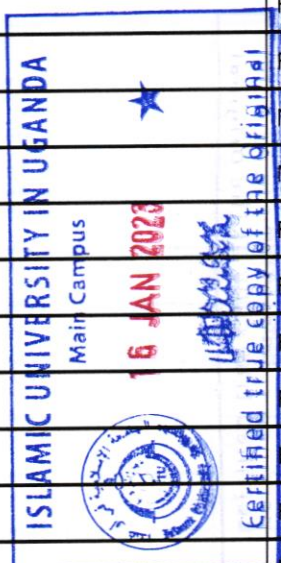 ISLAMIC UNIVERSITY IN UGANDA
Main Campus
16 JAN 2023
Certified true copy of the original